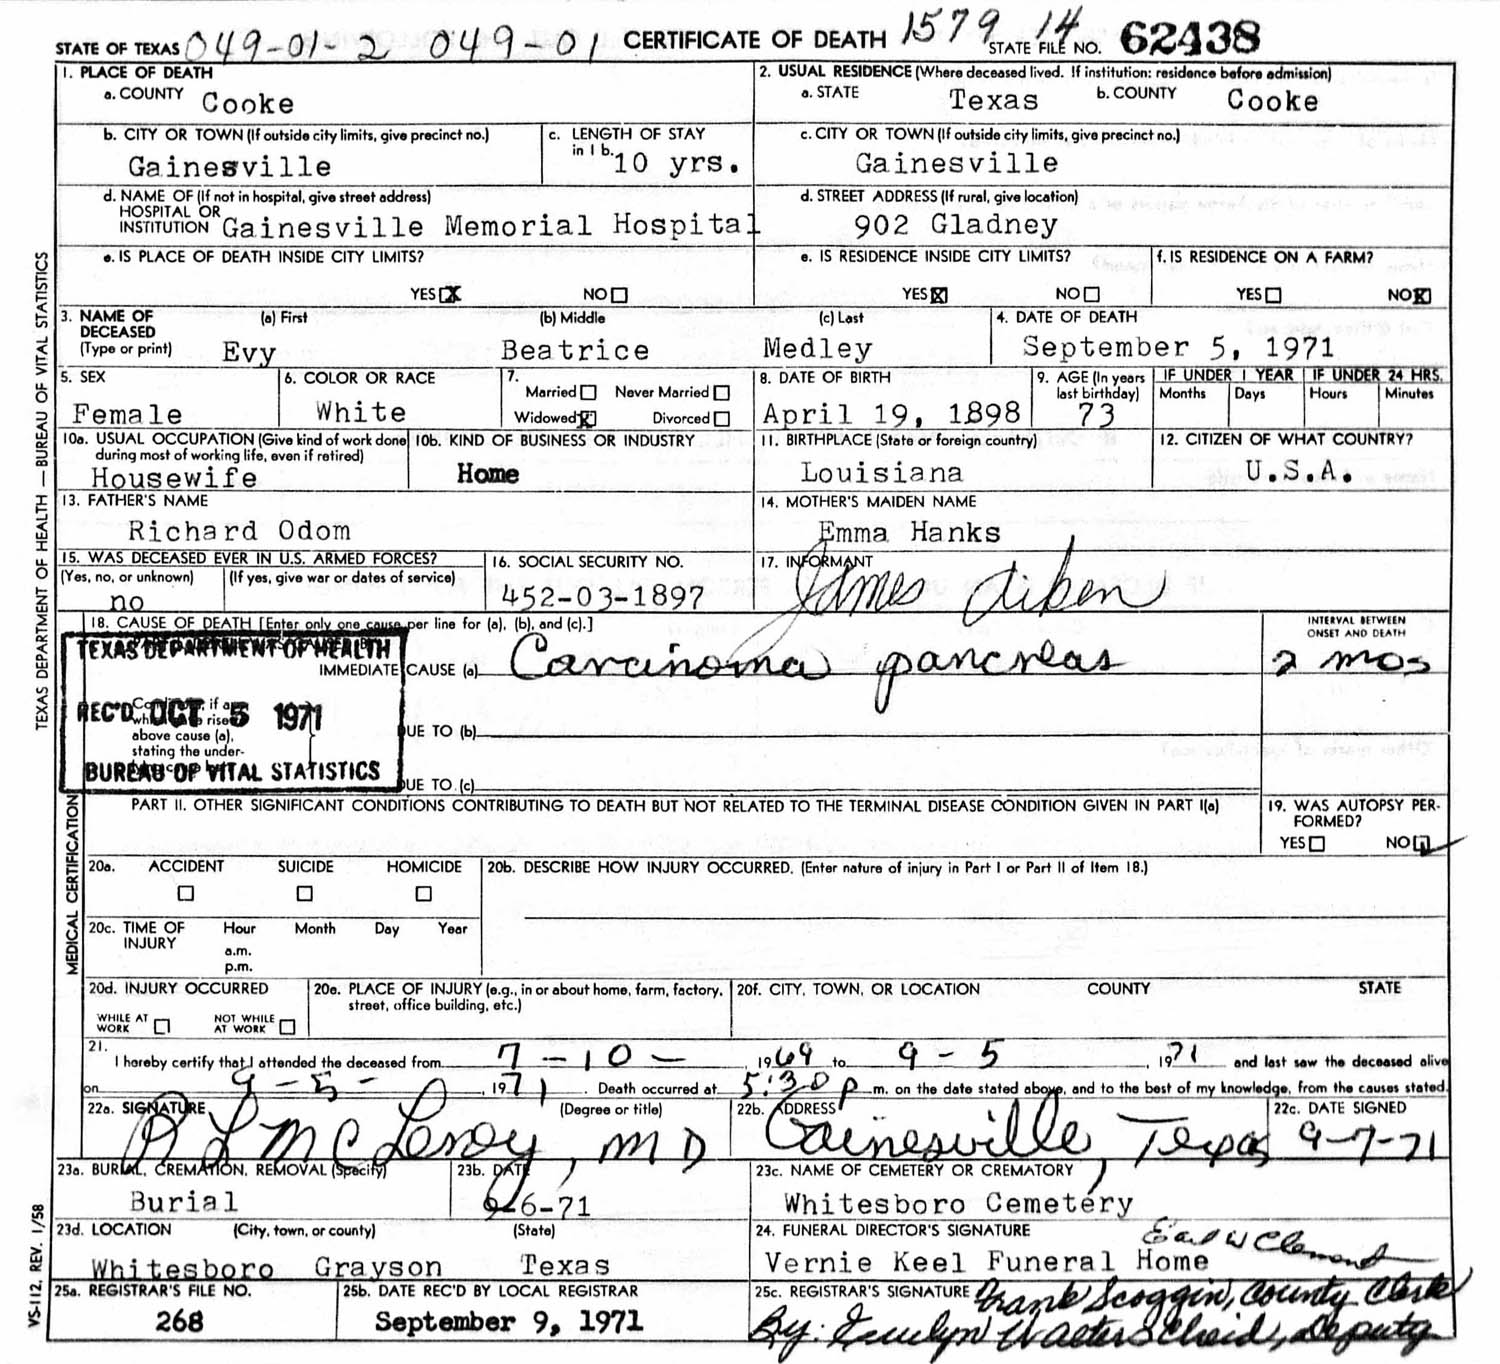 STATE OF TEXAS 049-01-2 049-01 CERTIFICATE OF DEATH 1579 14 STATE FILE NO. 62438
1. PLACE OF DEATH
a. COUNTY Cooke
2. USUAL RESIDENCE (Where deceased lived. If institution: residence before admission)
a. STATE Texas b. COUNTY Cooke
b. CITY OR TOWN (If outside city limits, give precinct no.)
Gainesville
c. LENGTH OF STAY in 1 b. 10 yrs.
c. CITY OR TOWN (If outside city limits, give precinct no.)
Gainesville
d. NAME OF (If not in hospital, give street address)
HOSPITAL OR
INSTITUTION Gainesville Memorial Hospital
d. STREET ADDRESS (If rural, give location)
902 Gladney
e. IS PLACE OF DEATH INSIDE CITY LIMITS?
YES X NO
e. IS RESIDENCE INSIDE CITY LIMITS?
YES X NO
f. IS RESIDENCE ON A FARM?
YES NO X
3. NAME OF DECEASED (Type or print)
(a) First (b) Middle (c) Last
Evy Beatrice Medley
4. DATE OF DEATH
September 5, 1971
5. SEX
Female
6. COLOR OR RACE
White
7.
Married Never Married
Widowed X Divorced
8. DATE OF BIRTH
April 19, 1898
9. AGE (In years last birthday)
73
IF UNDER 1 YEAR IF UNDER 24 HRS.
Months Days Hours Minutes
10a. USUAL OCCUPATION (Give kind of work done during most of working life, even if retired)
Housewife
10b. KIND OF BUSINESS OR INDUSTRY
Home
11. BIRTHPLACE (State or foreign country)
Louisiana
12. CITIZEN OF WHAT COUNTRY?
U.S.A.
13. FATHER'S NAME
Richard Odom
14. MOTHER'S MAIDEN NAME
Emma Hanks
15. WAS DECEASED EVER IN U.S. ARMED FORCES?
(Yes, no, or unknown) (If yes, give war or dates of service)
no
16. SOCIAL SECURITY NO.
452-03-1897
17. INFORMANT
James Aiken
18. CAUSE OF DEATH [Enter only one cause per line for (a), (b), and (c).]
INTERVAL BETWEEN ONSET AND DEATH
TEXAS DEPARTMENT OF HEALTH
REC'D OCT 5 1971
BUREAU OF VITAL STATISTICS
IMMEDIATE CAUSE (a) Carcinoma pancreas 2 mos
above cause (a),
stating the under-
DUE TO (b)
DUE TO (c)
PART II. OTHER SIGNIFICANT CONDITIONS CONTRIBUTING TO DEATH BUT NOT RELATED TO THE TERMINAL DISEASE CONDITION GIVEN IN PART I(a)
19. WAS AUTOPSY PERFORMED?
YES NO
20a. ACCIDENT SUICIDE HOMICIDE
20b. DESCRIBE HOW INJURY OCCURRED. (Enter nature of injury in Part I or Part II of Item 18.)
20c. TIME OF INJURY Hour Month Day Year
a.m.
p.m.
20d. INJURY OCCURRED
WHILE AT WORK NOT WHILE AT WORK
20e. PLACE OF INJURY (e.g., in or about home, farm, factory, street, office building, etc.)
20f. CITY, TOWN, OR LOCATION COUNTY STATE
21.
I hereby certify that I attended the deceased from 7-10- , 1969 to 9-5 , 1971 and last saw the deceased alive
on 9-5- , 1971 . Death occurred at 5:30 p m. on the date stated above, and to the best of my knowledge, from the causes stated.
22a. SIGNATURE (Degree or title)
R L McLeroy, MD
22b. ADDRESS
Gainesville, Texas
22c. DATE SIGNED
9-7-71
23a. BURIAL, CREMATION, REMOVAL (Specify)
Burial
23b. DATE
9-6-71
23c. NAME OF CEMETERY OR CREMATORY
Whitesboro Cemetery
23d. LOCATION (City, town, or county) (State)
Whitesboro Grayson Texas
24. FUNERAL DIRECTOR'S SIGNATURE
Earl W Clement
Vernie Keel Funeral Home
25a. REGISTRAR'S FILE NO.
268
25b. DATE REC'D BY LOCAL REGISTRAR
September 9, 1971
25c. REGISTRAR'S SIGNATURE Frank Scoggin, County Clerk
By: Walterscheid, Deputy
TEXAS DEPARTMENT OF HEALTH — BUREAU OF VITAL STATISTICS
MEDICAL CERTIFICATION
VS-112, REV. 1/58